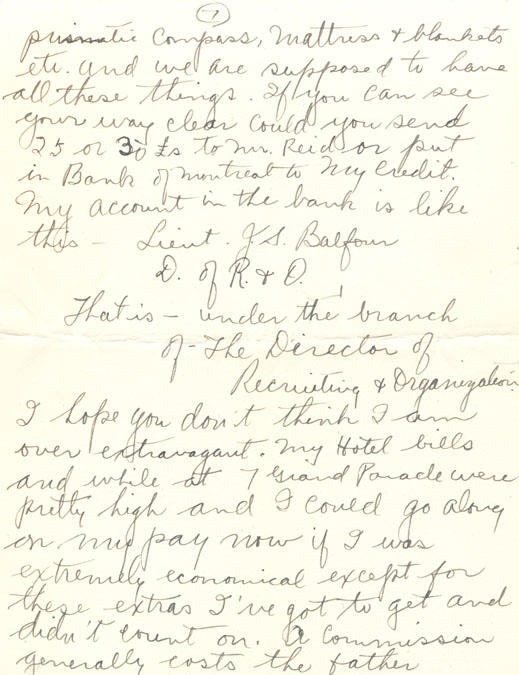 7
prismatic Compass, Mattress & blankets
etc. and we are supposed to have
all these things. If you can see
your way clear could you send
25 or 30 £s to Mr. Reid or put
in Bank of Montreal to My Credit.
My account in the bank is like
this - Lieut. J.S. Balfour
D. of R. & O.
That is - under the branch
of - The Director of
Recruiting & Organization
I hope you don't think I am
over extravagant. My Hotel bills
and while at 7 Grand Parade were
pretty high and I could go along
on my pay now if I was
extremely economical except for
these extras I've got to get and
didn't count on. A Commission
generally costs the father